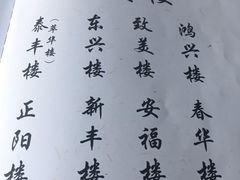 鸿兴楼
致美楼
东兴楼
泰丰楼
(萃华楼)
春华楼
安福楼
新丰楼
正阳楼